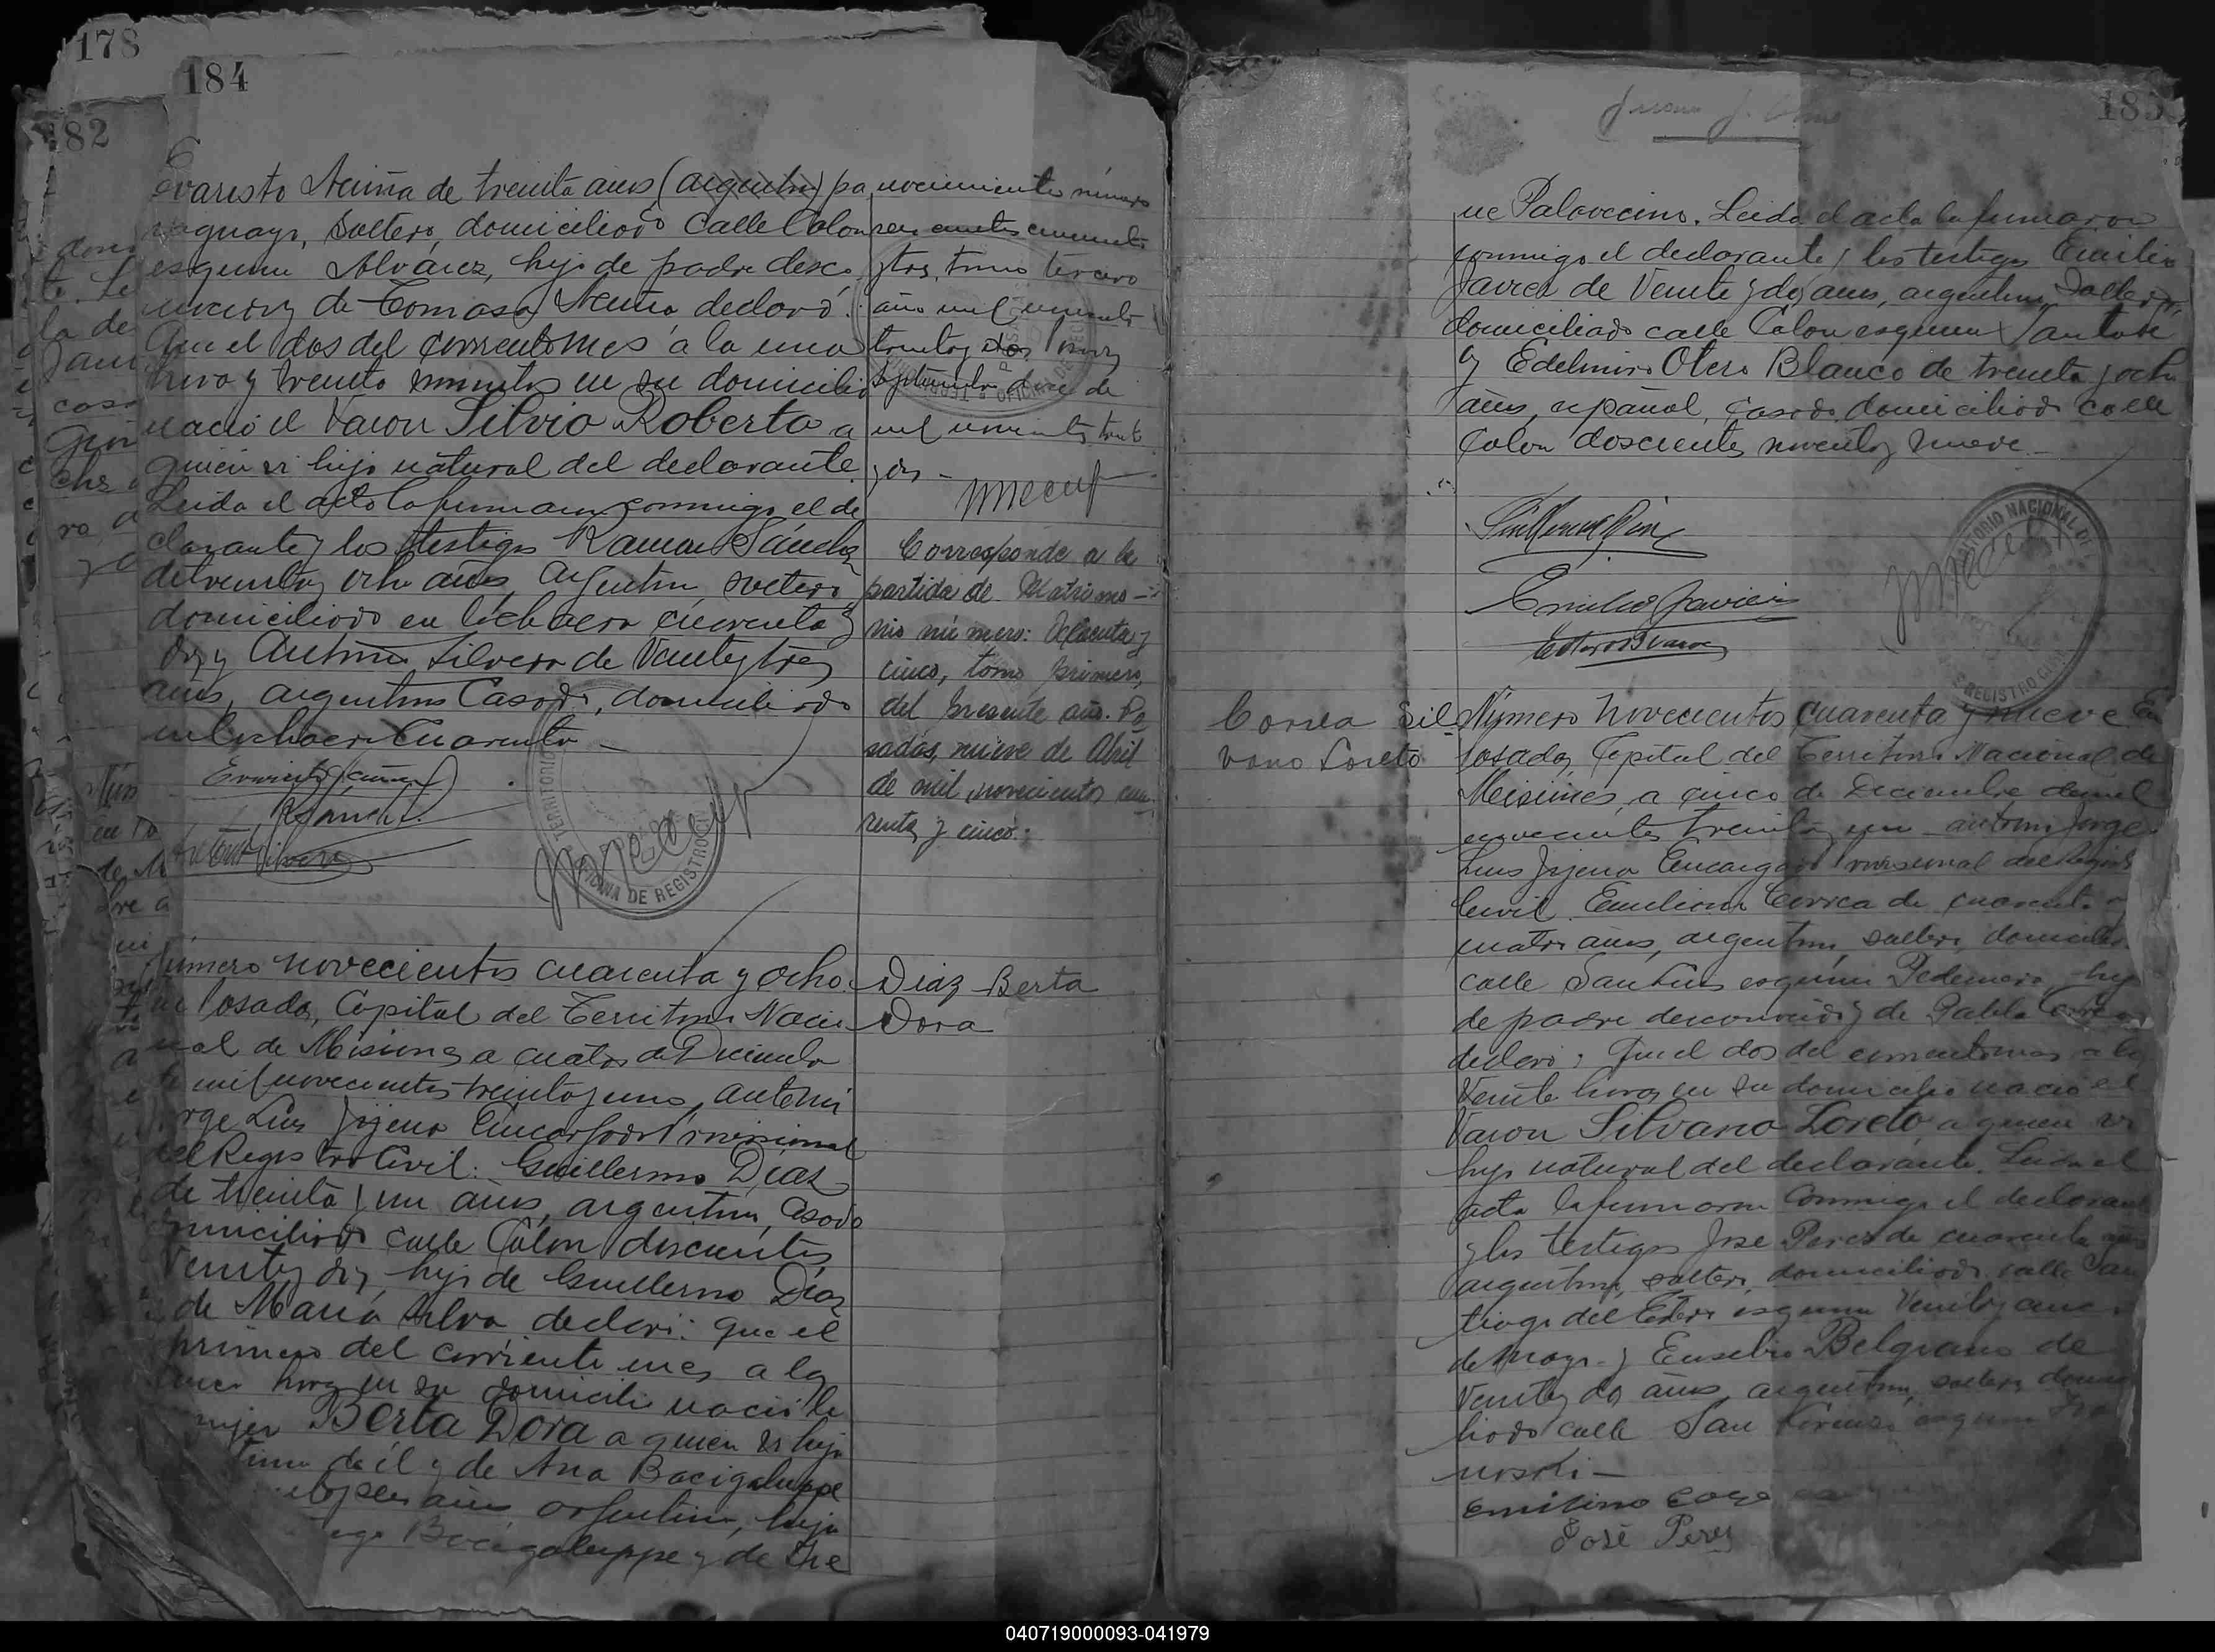 178
184
82
Evaristo Acuña de treinta años (argentino) pa
raguayo, soltero, domiciliado Calle Colon
esquina Alvarez, hijo de padre desco
nocido y de Tomasa Acuña declaró:
Que el dos del corriente mes a la una
hora y treinta minutos en su domicilio
nació el Varon Silvio Roberto a
quien es hijo natural del declarante.
Leida el acta la firmaron conmigo el de
clarante y los testigos Ramon Sánchez
de treinta y ocho años, argentino, soltero,
domiciliado en la chacra cuarenta y
dos y Antonio Silvera de Veinte y tres
años, argentino Casado, domiciliado
en la chacra Cuarenta
Evaristo Acuña
R Sánchez
Antonio Silvera
nocimiento número
seiscientos cincuenta
y tres, tomo tercero
año mil novecientos
treinta y dos
Septiembre doce de
mil novecientos treinta
y dos
Corresponde a la
partida de Matrimo-
nio número: Ochenta y
cinco, tomo primero,
del presente año. Po
sadas, nueve de Abril
de mil novecientos cua
renta y cinco.
TERRITORIO
OFICINA DE REGISTRO
Número novecientos cuarenta y ocho
en Posadas, Capital del Territorio Nacio
nal de Misiones a cuatro de Diciembre
de mil novecientos treinta y uno, ante mi
Jorge Luis Jijena Encargado Provisional
del Registro Civil: Guillermo Díaz
de treinta y un años, argentino, casado
domiciliado calle Colón doscientos
Veinte y dos, hijo de Guillermo Díaz
y de María Silva declaró: que el
primero del corriente mes a la
hora en su domicilio nació la
mujer Berta Dora a quien es hija
de él y de Ana Bacigaluppe
años argentina, hija
Bacigaluppe y de Ire
Diaz Berta
Dora
185
ne Palavecino. Leida el acta la firmaron
conmigo el declarante y los testigos Emilio
Javier de Veinte y dos años, argentino, soltero,
domiciliado calle Colon esquina Santa Fe
y Edelmiro Otero Blanco de treinta y ocho
años, español, casado, domiciliado calle
Colon doscientos noventa y nueve
Guillermo Diaz
Emilio Javier
E Otero Blanco
TERRITORIO NACIONAL DE
REGISTRO CIVIL
Correa Sil
vano Loreto
Número novecientos cuarenta y nueve En
Posadas, Capital del Territorio Nacional de
Misiones, a cinco de Diciembre de mil
novecientos treinta y uno ante mi Jorge
Luis Jijena Encargado Provisional del Registro
Civil. Emiliano Correa de cuarenta y
cuatro años, argentino, soltero, domiciliado
calle San Luis esquina Pedernera, hijo
de padre desconocido y de Pabla Correa
declaró: Que el dos del corriente mes a la
Veinte horas en su domicilio nació el
Varon Silvano Loreto a quien es
hijo natural del declarante. Leida el
acta la firmaron conmigo el declarante
y los testigos Jose Perez de cuarenta años
argentino, soltero, domiciliado calle San
tiago del Estero esquina Veinte y cinco
de Mayo y Eusebio Belgrano de
Veinte y dos años, argentino, soltero, domi
liado calle San Lorenzo esquina
Emiliano Correa
José Perez
040719000093-041979